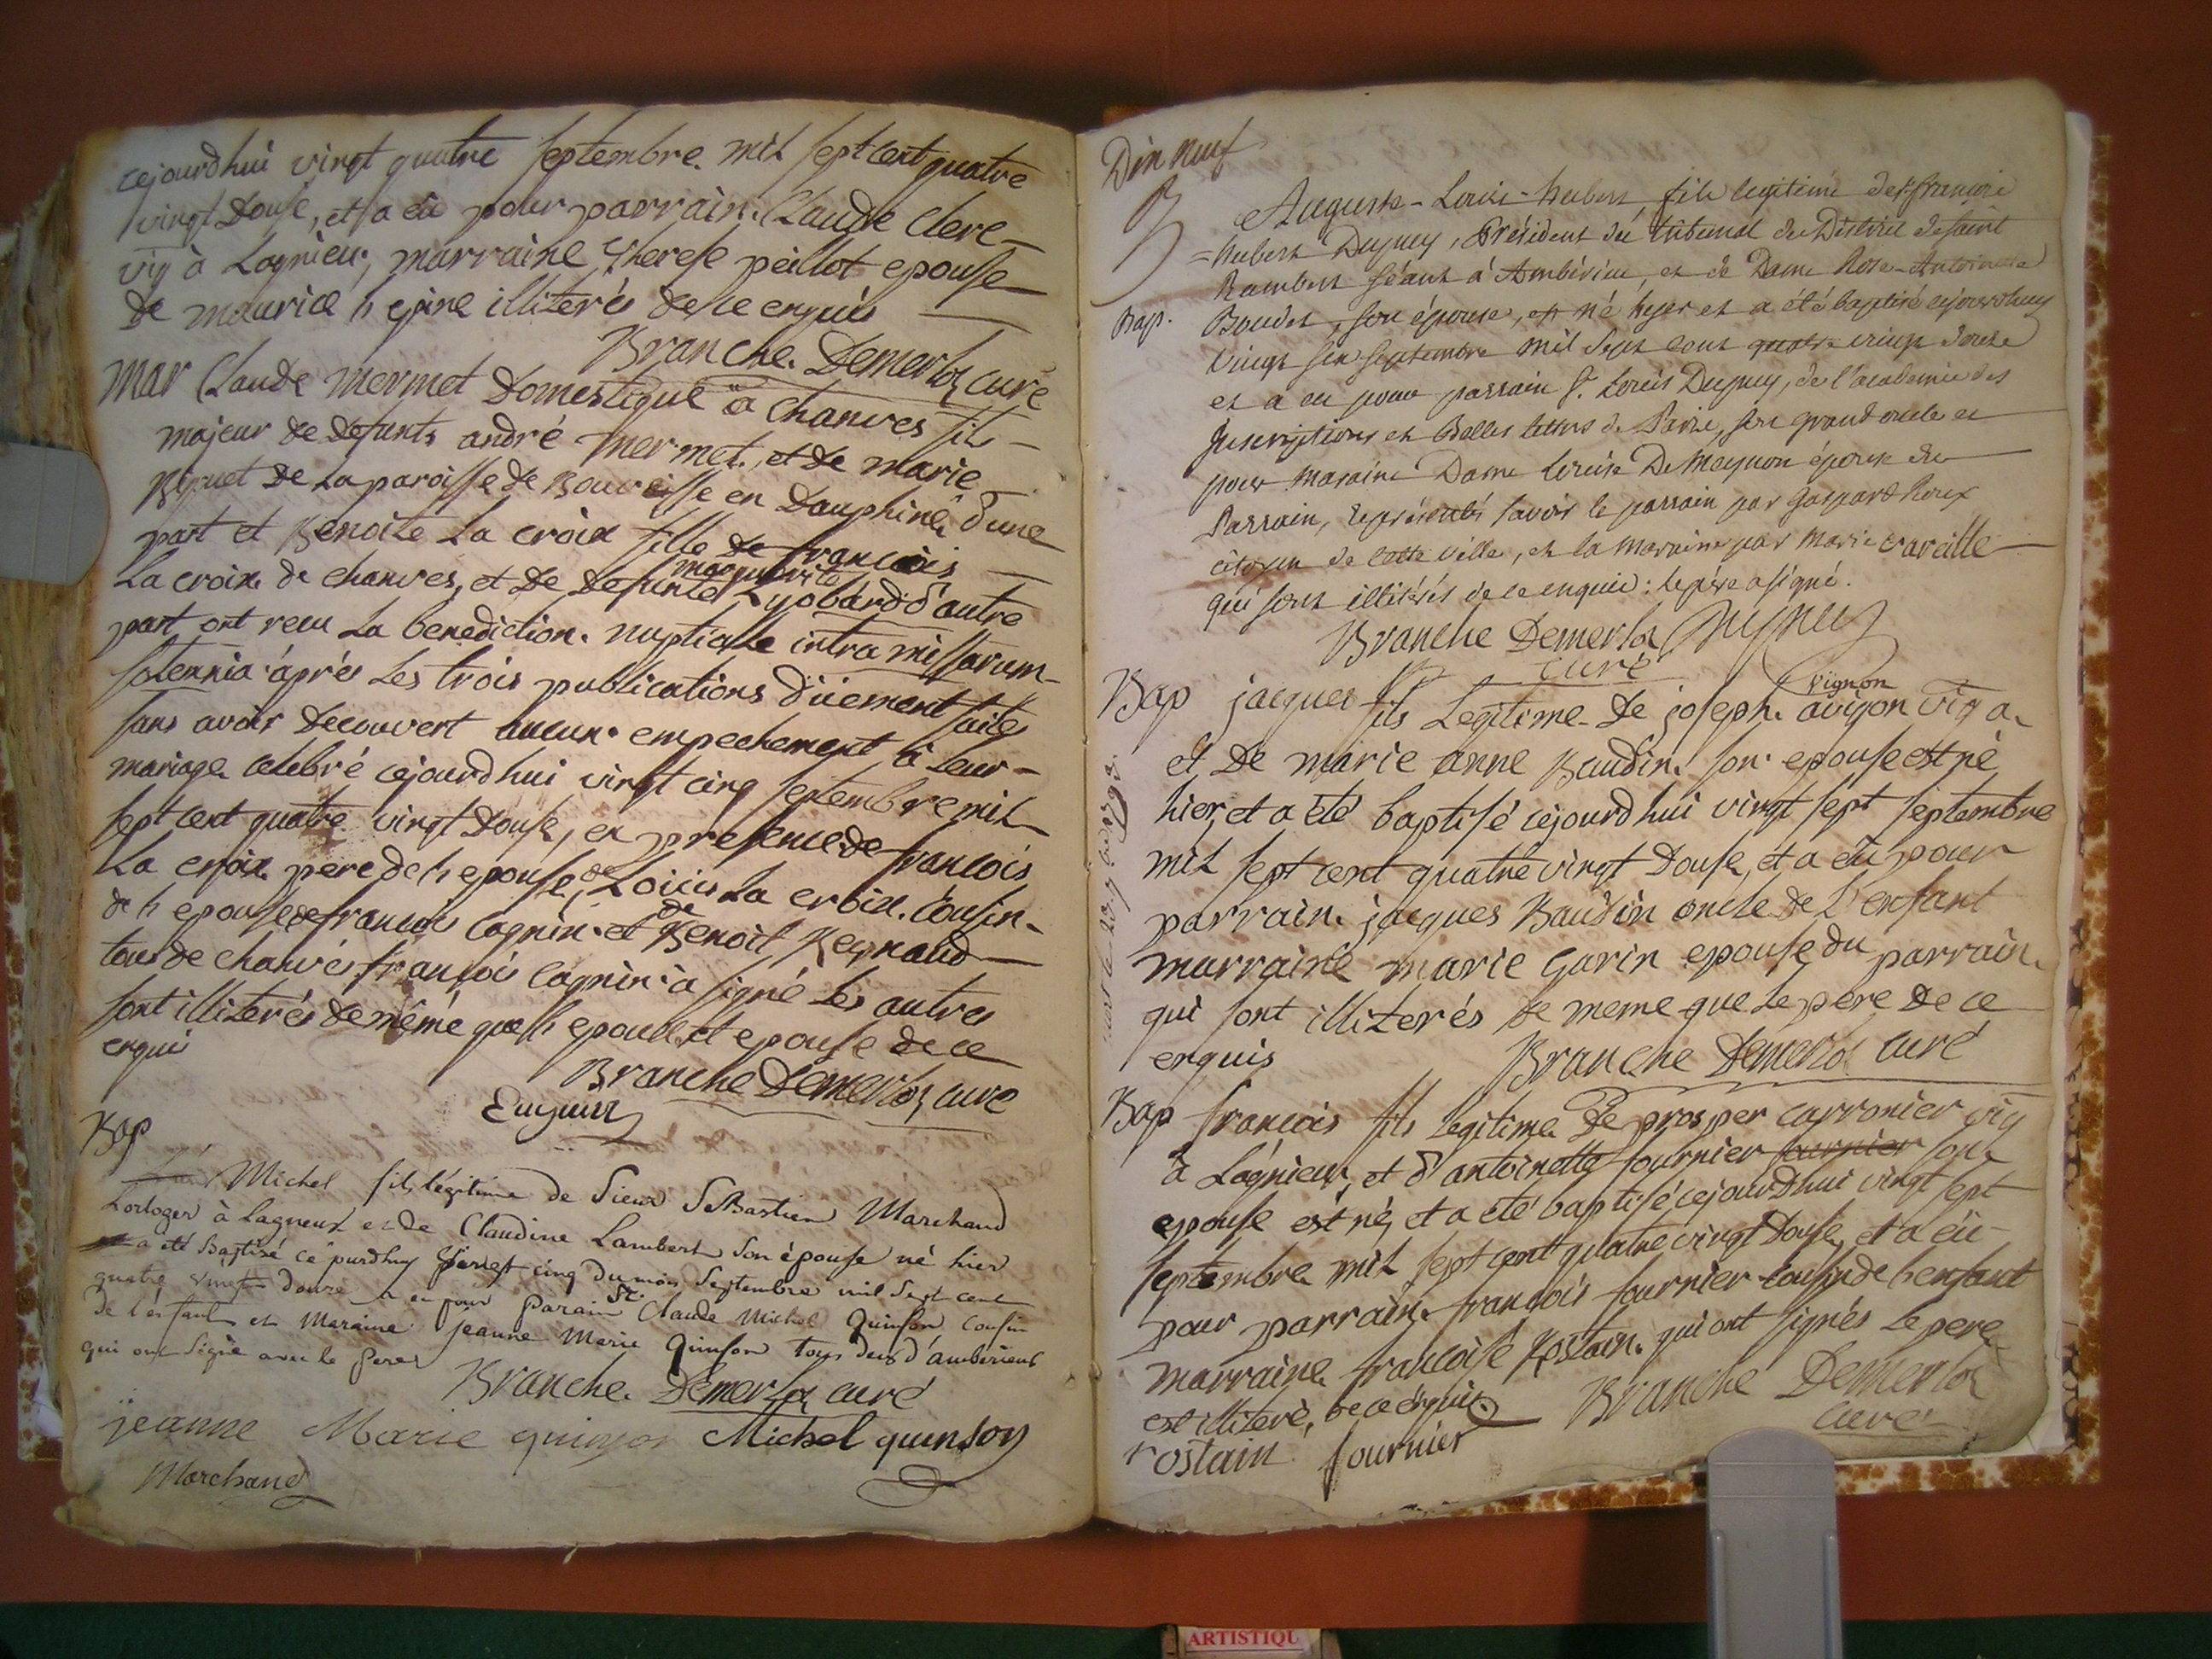 cejourdhui vingt quatre septembre mil sept cent quatre
vingt douse, et a eü pour parrain Claude Clere
vig à Lagnieu, marraine therese peillot epouse
de maurice illiterés de ce enquis
Branche Demerloz curé
Mar Claude mermet Domestique à chanves fils
majeur de defunts andré mermet, et de marie
de la paroisse de Bouvesse en Dauphiné d'une
part et Benoite La croix fille de francois
La croix de chanves, et de defunte marguerite Lyobard d'autre
part ont recu la benediction nuptialle intra missarum
solennia après les trois publications düement faites
sans avoir decouvert aucun empechement à leur
mariage celebré cejourdhui vingt cinq septembre mil
sept cent quatre vingt douse, en presence de francois
La croix pere de l'epouse, de Loüis La croix cousin
de l'epouse de francois Cagnin et de Benoit Reynaud
tous de chanves francois Cagnin a signé les autres
sont illiterés de même que l'epoux et epouse de ce
enquis
Branche Demerloz curé
Bap
Michel fils légitime de Sieur Sebastien Marchand
horloger à Lagneux et de Claudine Lambert son épouse né hier
a été Baptisé ce jourdhuy cinq du mois Septembre mil Sept cent
quatre vingt douze a eu pour Parain Sr. Claude Michel Quinson Cousin
de l'enfant et Maraine Jeanne Marie Quinson tous deux d'ambérieux
qui ont Signé avec le Pere
Branche Demerloz curé
jeanne Marie quinson Michel quinson
Marchand
Dix neuf
Auguste-Louis-hubert, fils legitime de Sr. françois
=hubert Dupuy, Président du tribunal du District de saint
Rambert séant à Ambérieu, et de Dame Rose-Antoinette
Bap. Boudet, son épouse, est né hyer et a été baptisé cejourdhuy
vingt six septembre mil sept cent quatre vingt douze
et a eu pour parrain Sr. Louis Dupuy, de l'academie des
Inscriptions et Belles lettres de Paris, son grand oncle et
pour maraine Dame Louise De Meynon épouse du
Parrain, représentés savoir le parrain par Gaspard Roux
citoyen de cette ville, et la maraine par Marie Vareille
qui sont illitérés de ce enquis: le père a signé.
Branche Demerloz Dupuy
curé
Bap jacques fils legitime de joseph avignon vig a
vignon
et de marie anne Baudin son epouse est né
hier, et a été baptisé cejourdhui vingt sept septembre
mil sept cent quatre vingt douse, et a eü pour
parrain jacques Baudin oncle de l'enfant
marraine marie Garin epouse du parrain
qui sont illiterés de meme que le pere de ce
enquis Branche Demerloz curé
Bap francois fils legitime de prosper carronier vig
à Lagnieu, et d'antoinette fournier fournier son
epouse est né, et a été baptisé cejourdhui vingt sept
septembre mil sept cent quatre vingt douse, et a eü
pour parrain francois fournier cousin de l'enfant
marraine francoise Rostain qui ont signés le pere
est illiteré, de ce enquis Branche Demerloz
curé
rostain fournier